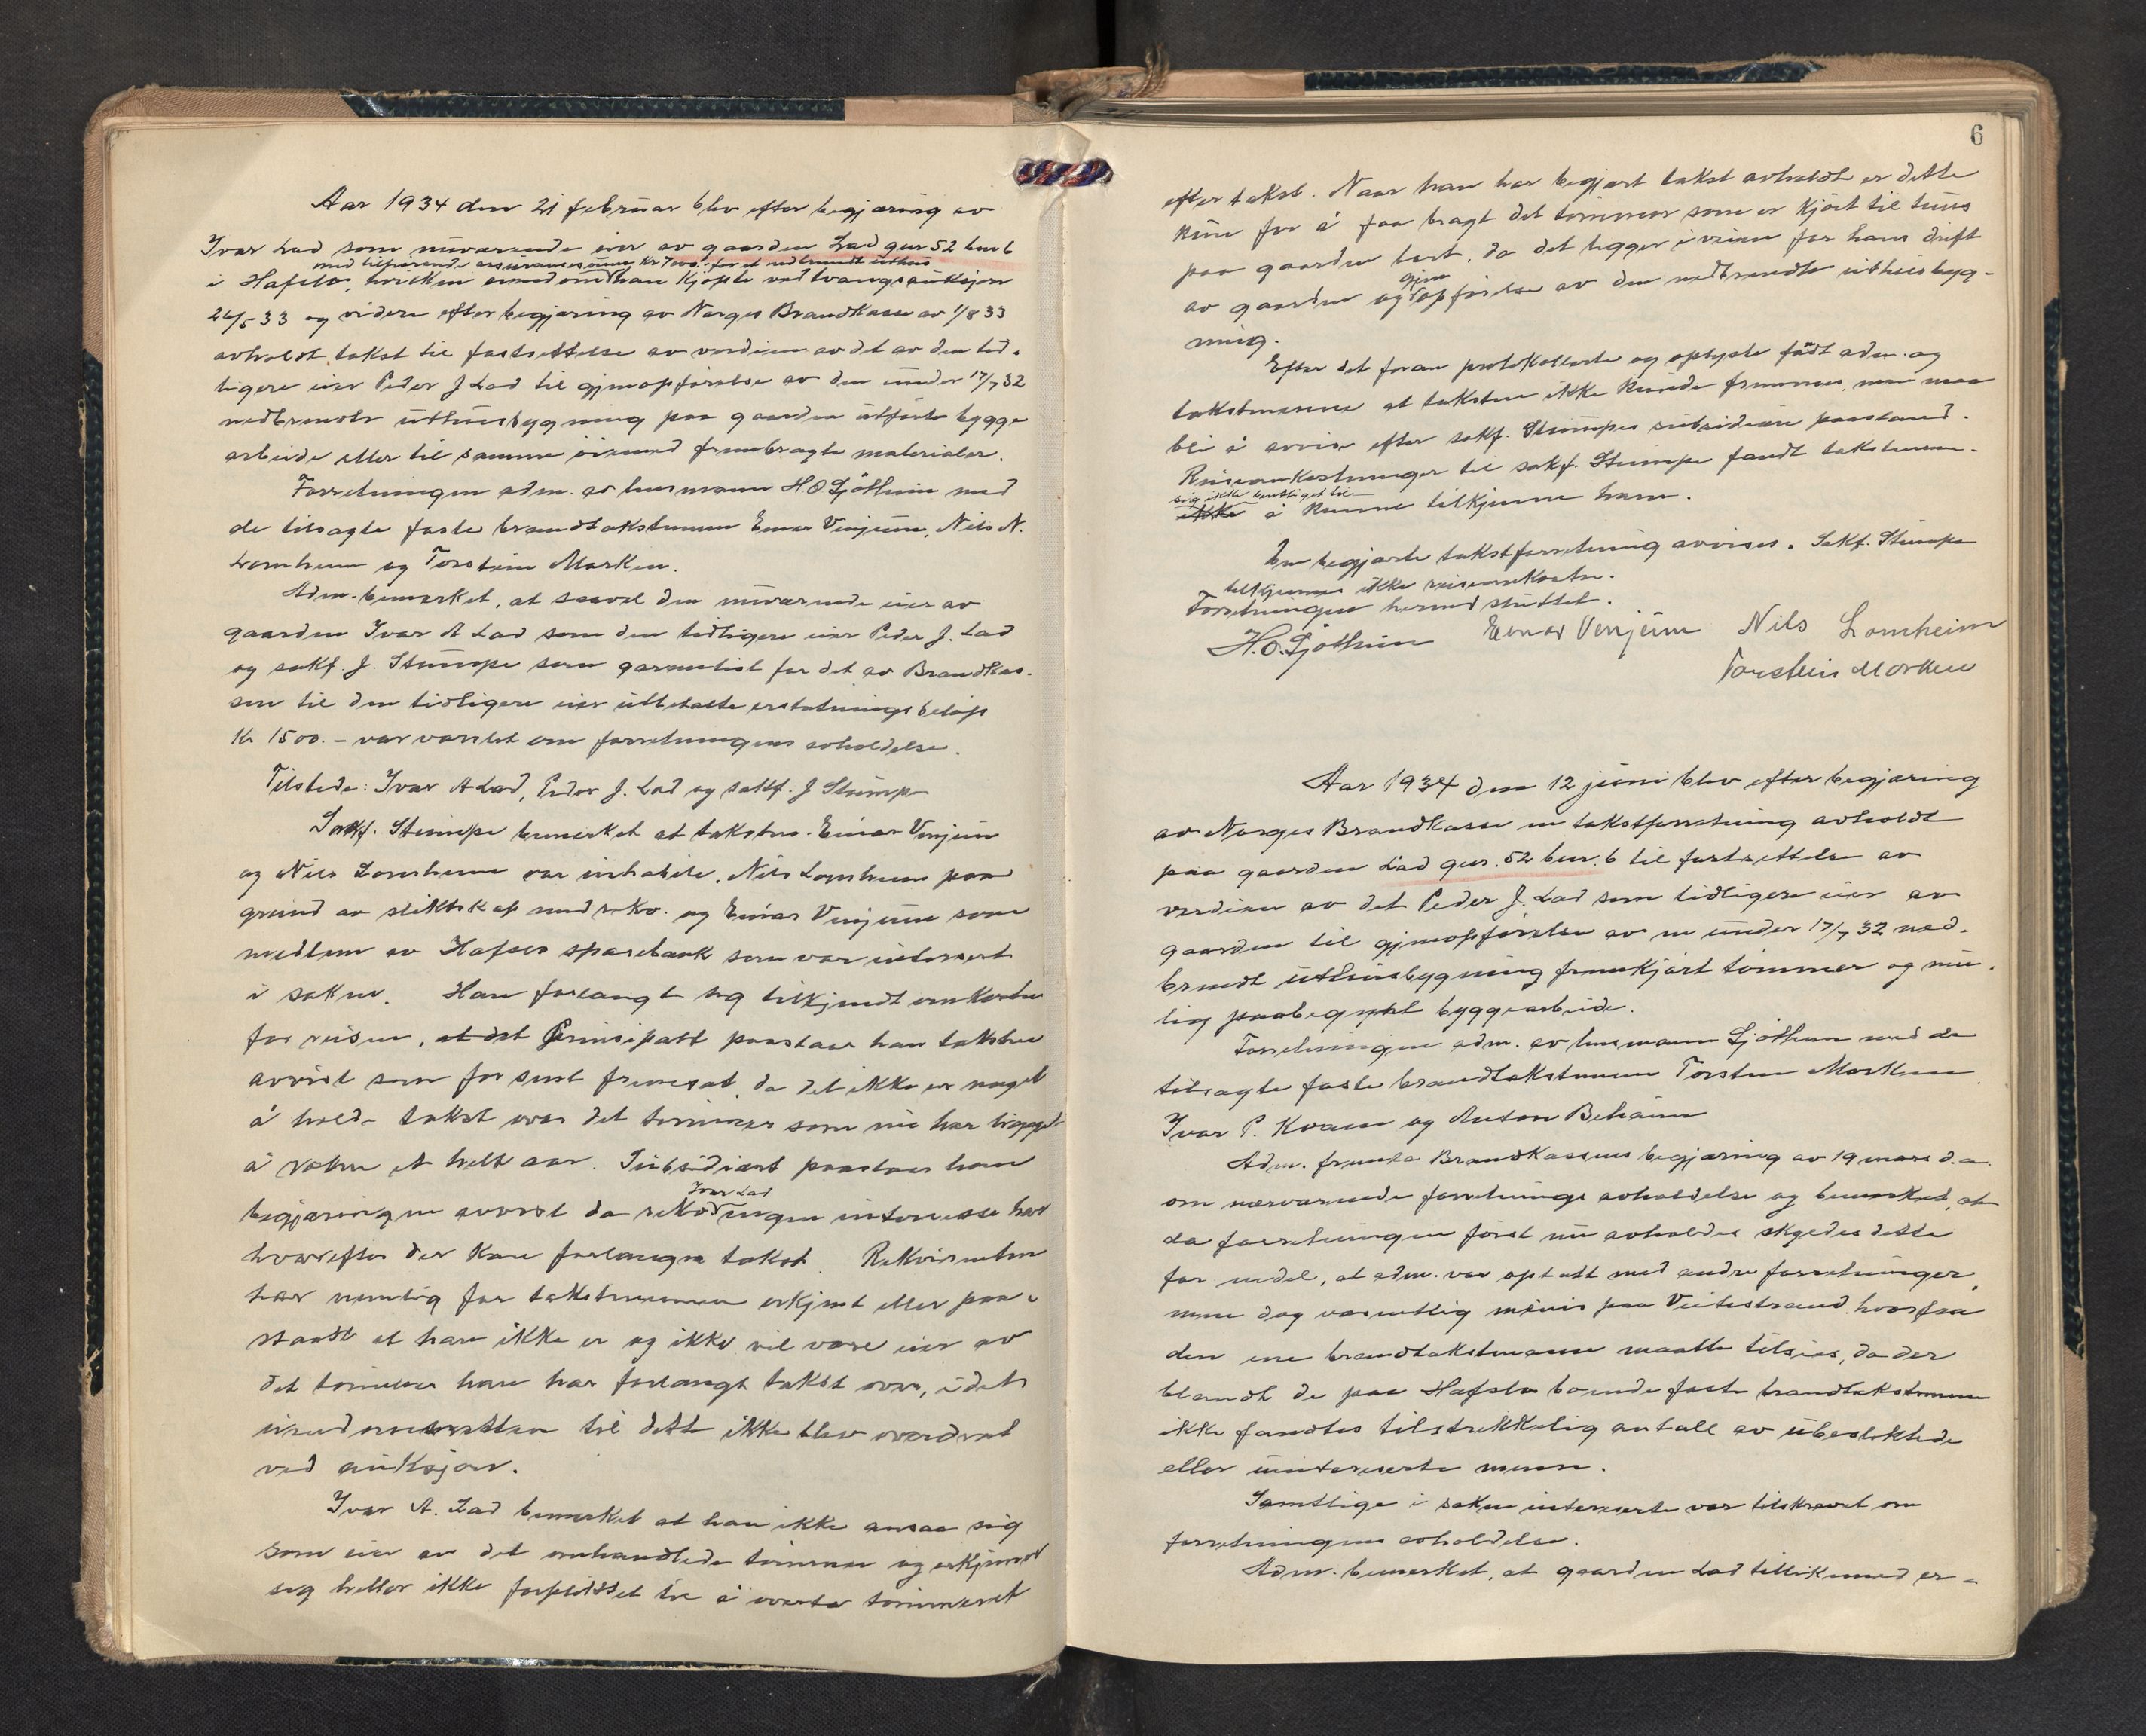 Aar 1934 den 21 februar blev efter begjæring av
Ivar Lad som nuværende eier av gaarden Lad gnr 52 bnr 6
med tilhørende assuransesum Kr 7000 for et nedbrændt uthus
i Hafslo, hvilken eiendom han kjøpte ved tvangsauksjon
26/5 33 og videre efter begjæring av Norges Brandkasse av 1/8 33
avholdt takst til fastsettelse av verdien av det av den tid-
ligere eier Peder J Lad til gjenopførelse av den under 17/7 32
nedbrendte uthusbygning paa gaarden utførte bygge
arbeide eller til samme øiemed frembragte materialer.
Forretningen adm. av lensmann H O Ljøtheim med
de tilsagte faste brandtakstmenn Einar Venjum, Nils N.
Lomheim og Torstein Morken.
Adm. bemerket, at saavel den nuværende eier av
gaarden Ivar A Lad som den tidligere eier Peder J. Lad
og sakf. J. Stumpe som garantist for det av Brandkas-
sen til den tidligere eier utbetalte erstatningsbeløp
Kr 1500.- var varslet om forretningens avholdelse.
Tilstede: Ivar A Lad, Peder J. Lad og sakf. J Stumpe
Sakf. Stumpe bemerket at takstm. Einar Venjum
og Nils Lomheim var inhabile, Nils Lomheim paa
grund av slektskap med rekv. og Einar Venjum som
medlem av Hafslo sparebank som var interessert
i saken. Han forlangte sig tilkjendt omkostn
for reisen, at det Prinsipalt paastaar han taksten
avvist som for sent fremsat, da det ikke er noget
å holde takst over det tømmer som nu har ligget
å raatne et helt aar. Subsidiært paastaar han
Ivar Lad
begjæringen avvist da rekv. ingen interesse har
hvorefter der kan forlanges takst. Rekvirenten
har nemlig for takstmennene erkjent eller paa-
staatt at han ikke er og ikke vil være eier av
det tømmer han har forlangt takst over, idet
eiendomsretten til dette ikke blev overdrat
ved auksjon.
Ivar A. Lad bemerket at han ikke ansaa sig
som eier av det omhandlede tømmer og erkjenner
sig heller ikke forpliktet til å overta tømmeret
6
efter takst. Naar han har begjært takst avholdt er dette
kun for å faa bragt det tømmer som er kjørt til tuns
paa gaarden bort, da det ligger i veien for hans drift
gjen
av gaarden og opførelse av den nedbrendte uthusbyg-
ning.
Efter det foran protokollerte og oplyste fandt adm. og
takstmennene at taksten ikke kunde fremmes, men maa
bli å avvise efter sakf. Stumpes subsidiære paastand.
Reiseomkostninger til sakf. Stumpe fandt takstmenn-
sig ikke berettiget til
ikke å kunne tilkjenne ham.
Den begjærte takstforretning avvises. Sakf. Stumpe
tilkjennes ikke reiseomkostn.
Forretningen hermed sluttet.
H.O. Ljøtheim Einar Venjum Nils Lomheim
Torstein Morken
Aar 1934 den 12 juni blev efter begjæring
av Norges Brandkasse en takstforretning avholdt
paa gaarden Lad gnr. 52 bnr. 6 til fastsettelse av
verdien av det Peder J. Lad som tidligere eier av
gaarden til gjenopførelse av en under 17/7 32 ned-
brendt uthusbygning fremkjørt tømmer og mu-
lig paabegynt byggearbeide.
Forretningen adm. av lensmann Ljøtheim med de
tilsagte faste brandtakstmenn Torstein Morken
Ivar P. Kvam og Anton Beheim
Adm. fremla Brandkassens begjæring av 19 mars d.a.
om nærværende forretnings avholdelse og bemerket, at
da forretningen først nu avholdes skyldes dette
for endel, at adm. var optatt med andre forretninger,
men dog væsentlig menis paa Veitestrand, hvorfra
den ene brandtakstmann maatte tilsies, da der
blandt de paa Hafslo boende faste brandtakstmenn
ikke fandtes tilstrekkelig antall av ubeslektede
eller uinteresserte menn.
Samtlige i saken interesserte var tilskrevet om
forretningens avholdelse.
Adm. bemerket, at gaarden Lad tillikemed er-